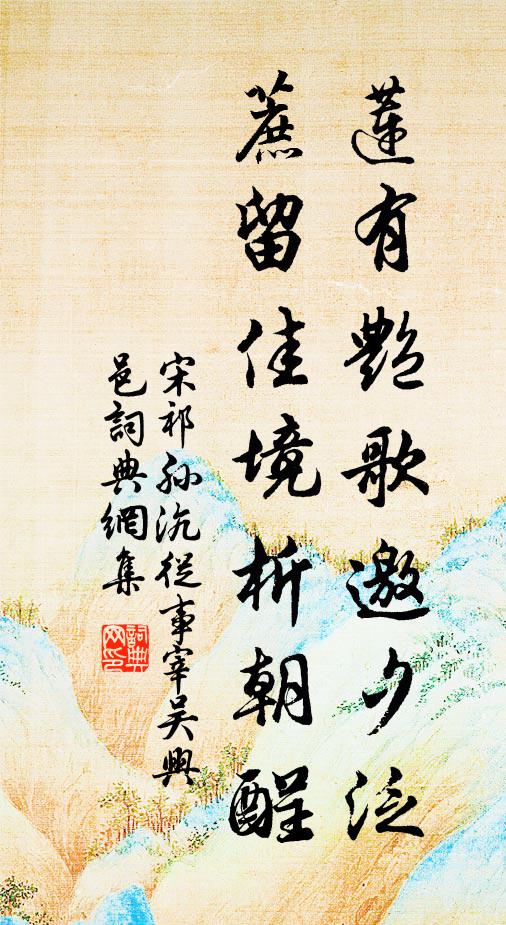 蓮有艷歌邀夕泛
蔗留佳境析朝酲
宋祁孫沇從事宰吳興
邑詞典網集
詞典網印